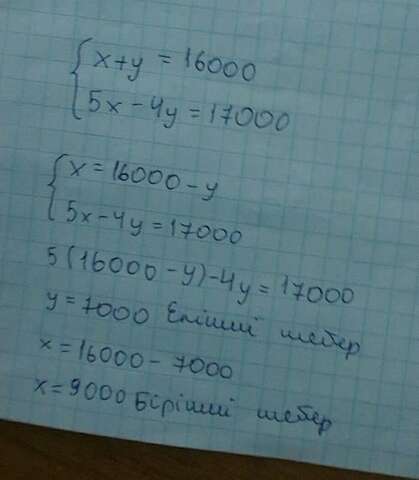 x+y = 16000
5x-4y = 17000
x = 16000 - y
5x-4y = 17000
5(16000 - y)-4y = 17000
y = 7000 Екінші шебер
x = 16000 - 7000
x = 9000 Бірінші шебер